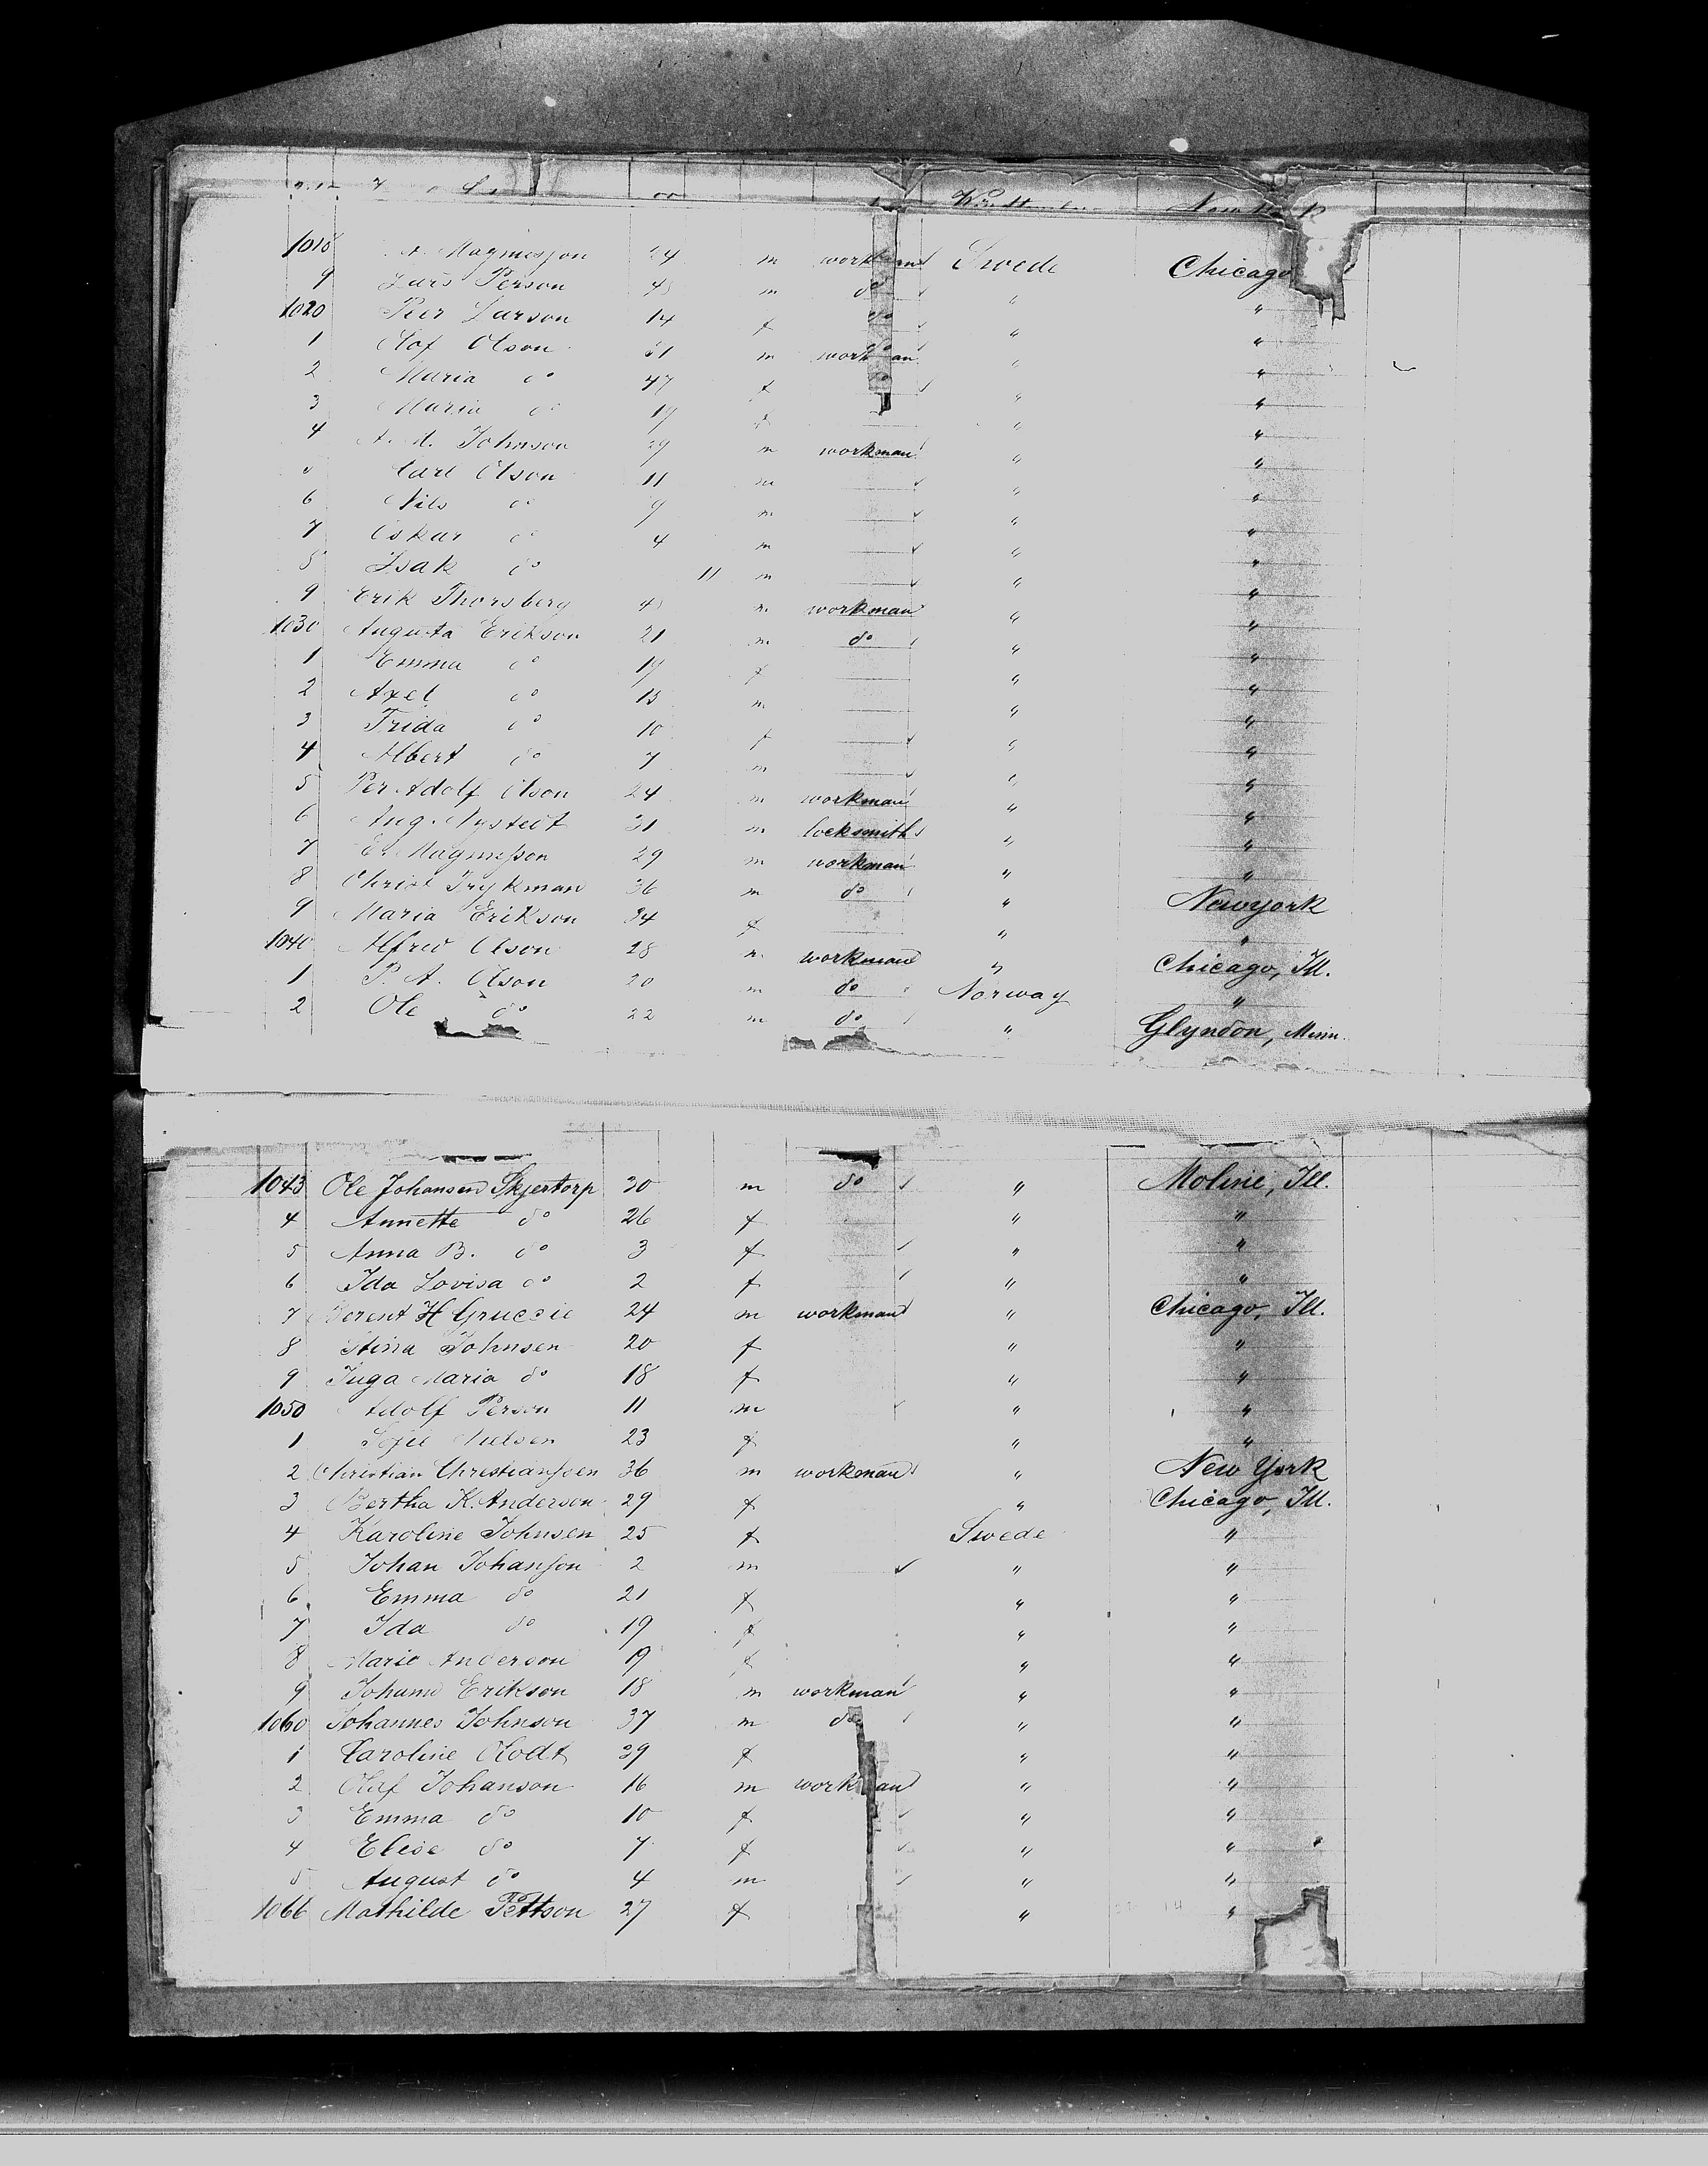 1018 A. Magnusson 24 m workman Swede Chicago
9 Lars Person m do " "
1020 Peer Larson 14 f do " "
1 Olof Olson 51 m workman " "
2 Maria do 47 f do " "
3 Maria do 19 f " "
4 Johnson 29 m workman " "
5 Carl Olson 11 m " "
6 Nils do 9 m " "
7 Oskar do 4 m " "
8 Isak do 11 m " "
9 Erik Thorsberg m workman " "
1030 Augusta Erikson 21 m do " "
1 Emma do 19 f " "
2 Axel do 13 m " "
3 Frida do 10 f " "
4 Albert do 7 m " "
5 Per Adolf Olson 24 m workman " "
6 Aug. Nystedt 31 m locksmith " "
7 E. Magnusson 29 m workman " "
8 Christ Frykman 36 m do " Newyork
9 Maria Erikson 34 f " "
1040 Alfred Olson 28 m workman " Chicago, Ill.
1 P. A. Olson 20 m do Norway "
2 Ole do 22 m do " Glyndon, Minn.
1043 Ole Johansen Skjertorp 30 m do " Moline, Ill.
4 Annette do 26 f " "
5 Anna B. do 3 f " "
6 Ida Lovisa do 2 f " "
7 Berent H Gruccie 24 m workman " Chicago, Ill.
8 Stina Johnsen 20 f " "
9 Inga Maria do 18 f " "
1050 Adolf Person 11 m " "
1 Sofie Nielsen 23 f " "
2 Christian Christianssen 36 m workman " New York
3 Bertha K. Anderson 29 f " Chicago, Ill.
4 Karoline Johnsen 25 f Swede "
5 Johan Johanson 2 m " "
6 Emma do 21 f " "
7 Ida do 19 f " "
8 Marie Anderson 19 f " "
9 Johann Erikson 18 m workman " "
1060 Johannes Johnson 37 m do " "
1 Caroline Olodt 39 f " "
2 Olaf Johanson 16 m workman " "
3 Emma do 10 f " "
4 Elise do 7 f " "
5 August do 4 m " "
1066 Mathilde Pettson 27 f " "